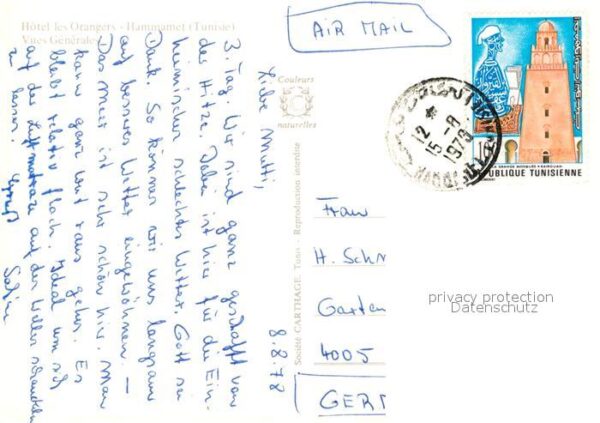 Hôtel les Orangers - Hammamet (Tunisie)
Vues Générales
8.8.78
Liebe Mutti,
3. Tag. Wir sind ganz geschafft von
der Hitze. Dabei ist hier für die Ein-
heimischen schlechtes Wetter. Gott sei
Dank. So können wir uns langsam
auf besseres Wetter eingewöhnen. –
Das Meer ist sehr schön hier. Man
kann ganz weit raus gehen. Es
bleibt relativ flach. Ideal um sich
auf der Luftmatraze auf den Wellen schaukeln
zu lassen. Gruß
Couleurs
naturelles
Société CARTHAGE, Tunis - Reproduction interdite
AIR MAIL
12 *
15 -8
1978
LA GRANDE MOSQUEE - KAIROUAN
REPUBLIQUE TUNISIENNE
Frau
H. Schm
Garten
4005
GER
privacy protection
Datenschutz